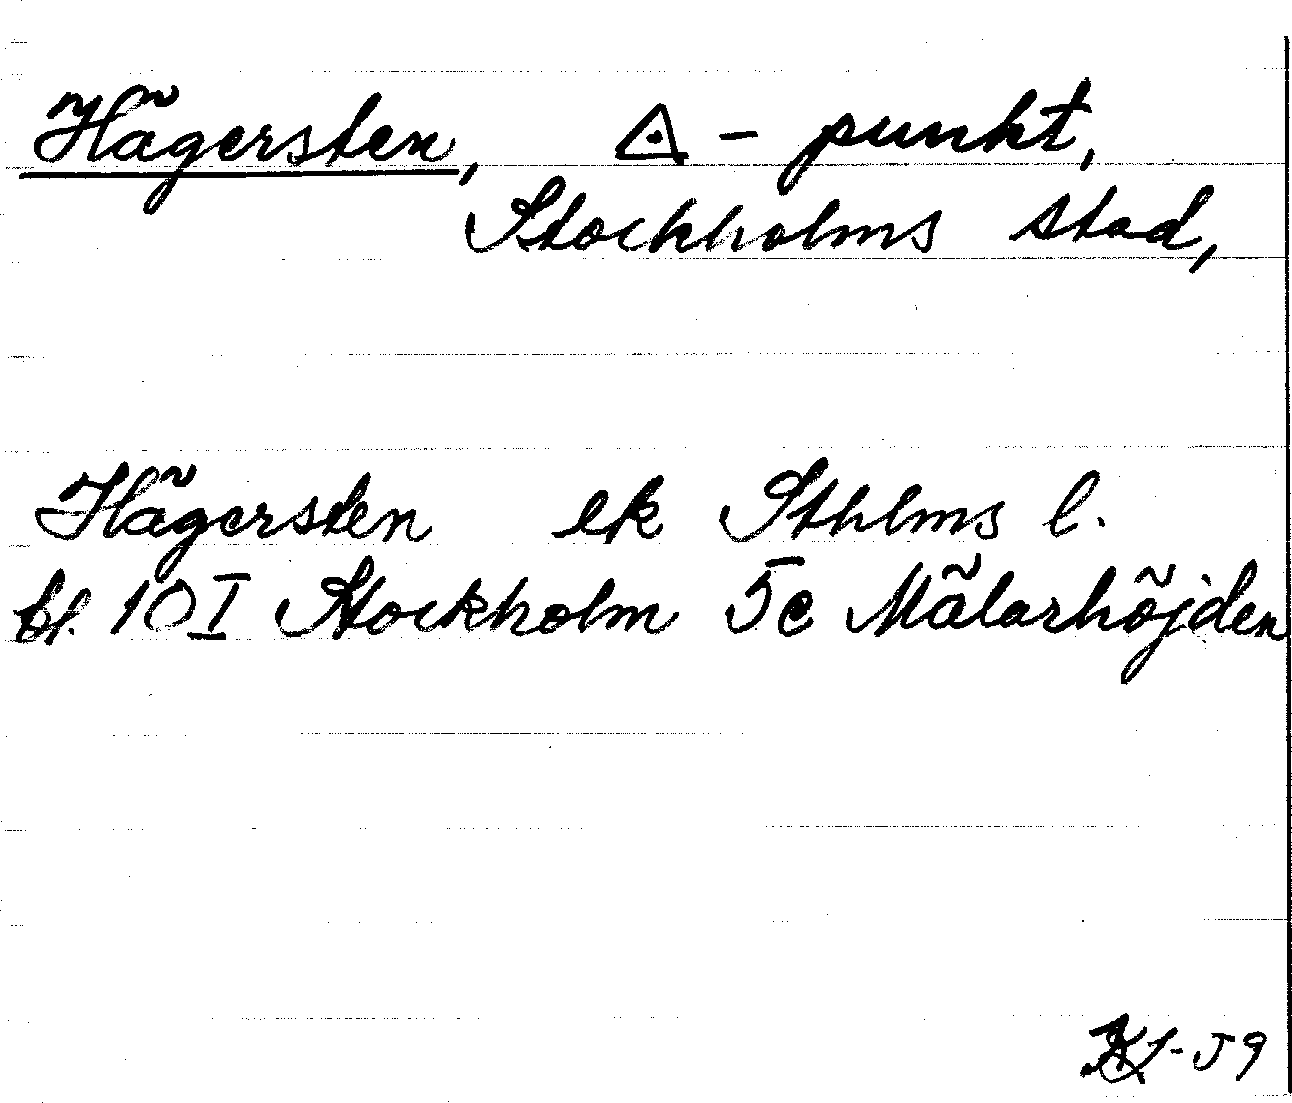 Hägersten, △ - punkt,
Stockholms stad,
Hägersten ek Sthlms l.
bl. 10 I Stockholm 5c Mälarhöjden
-59